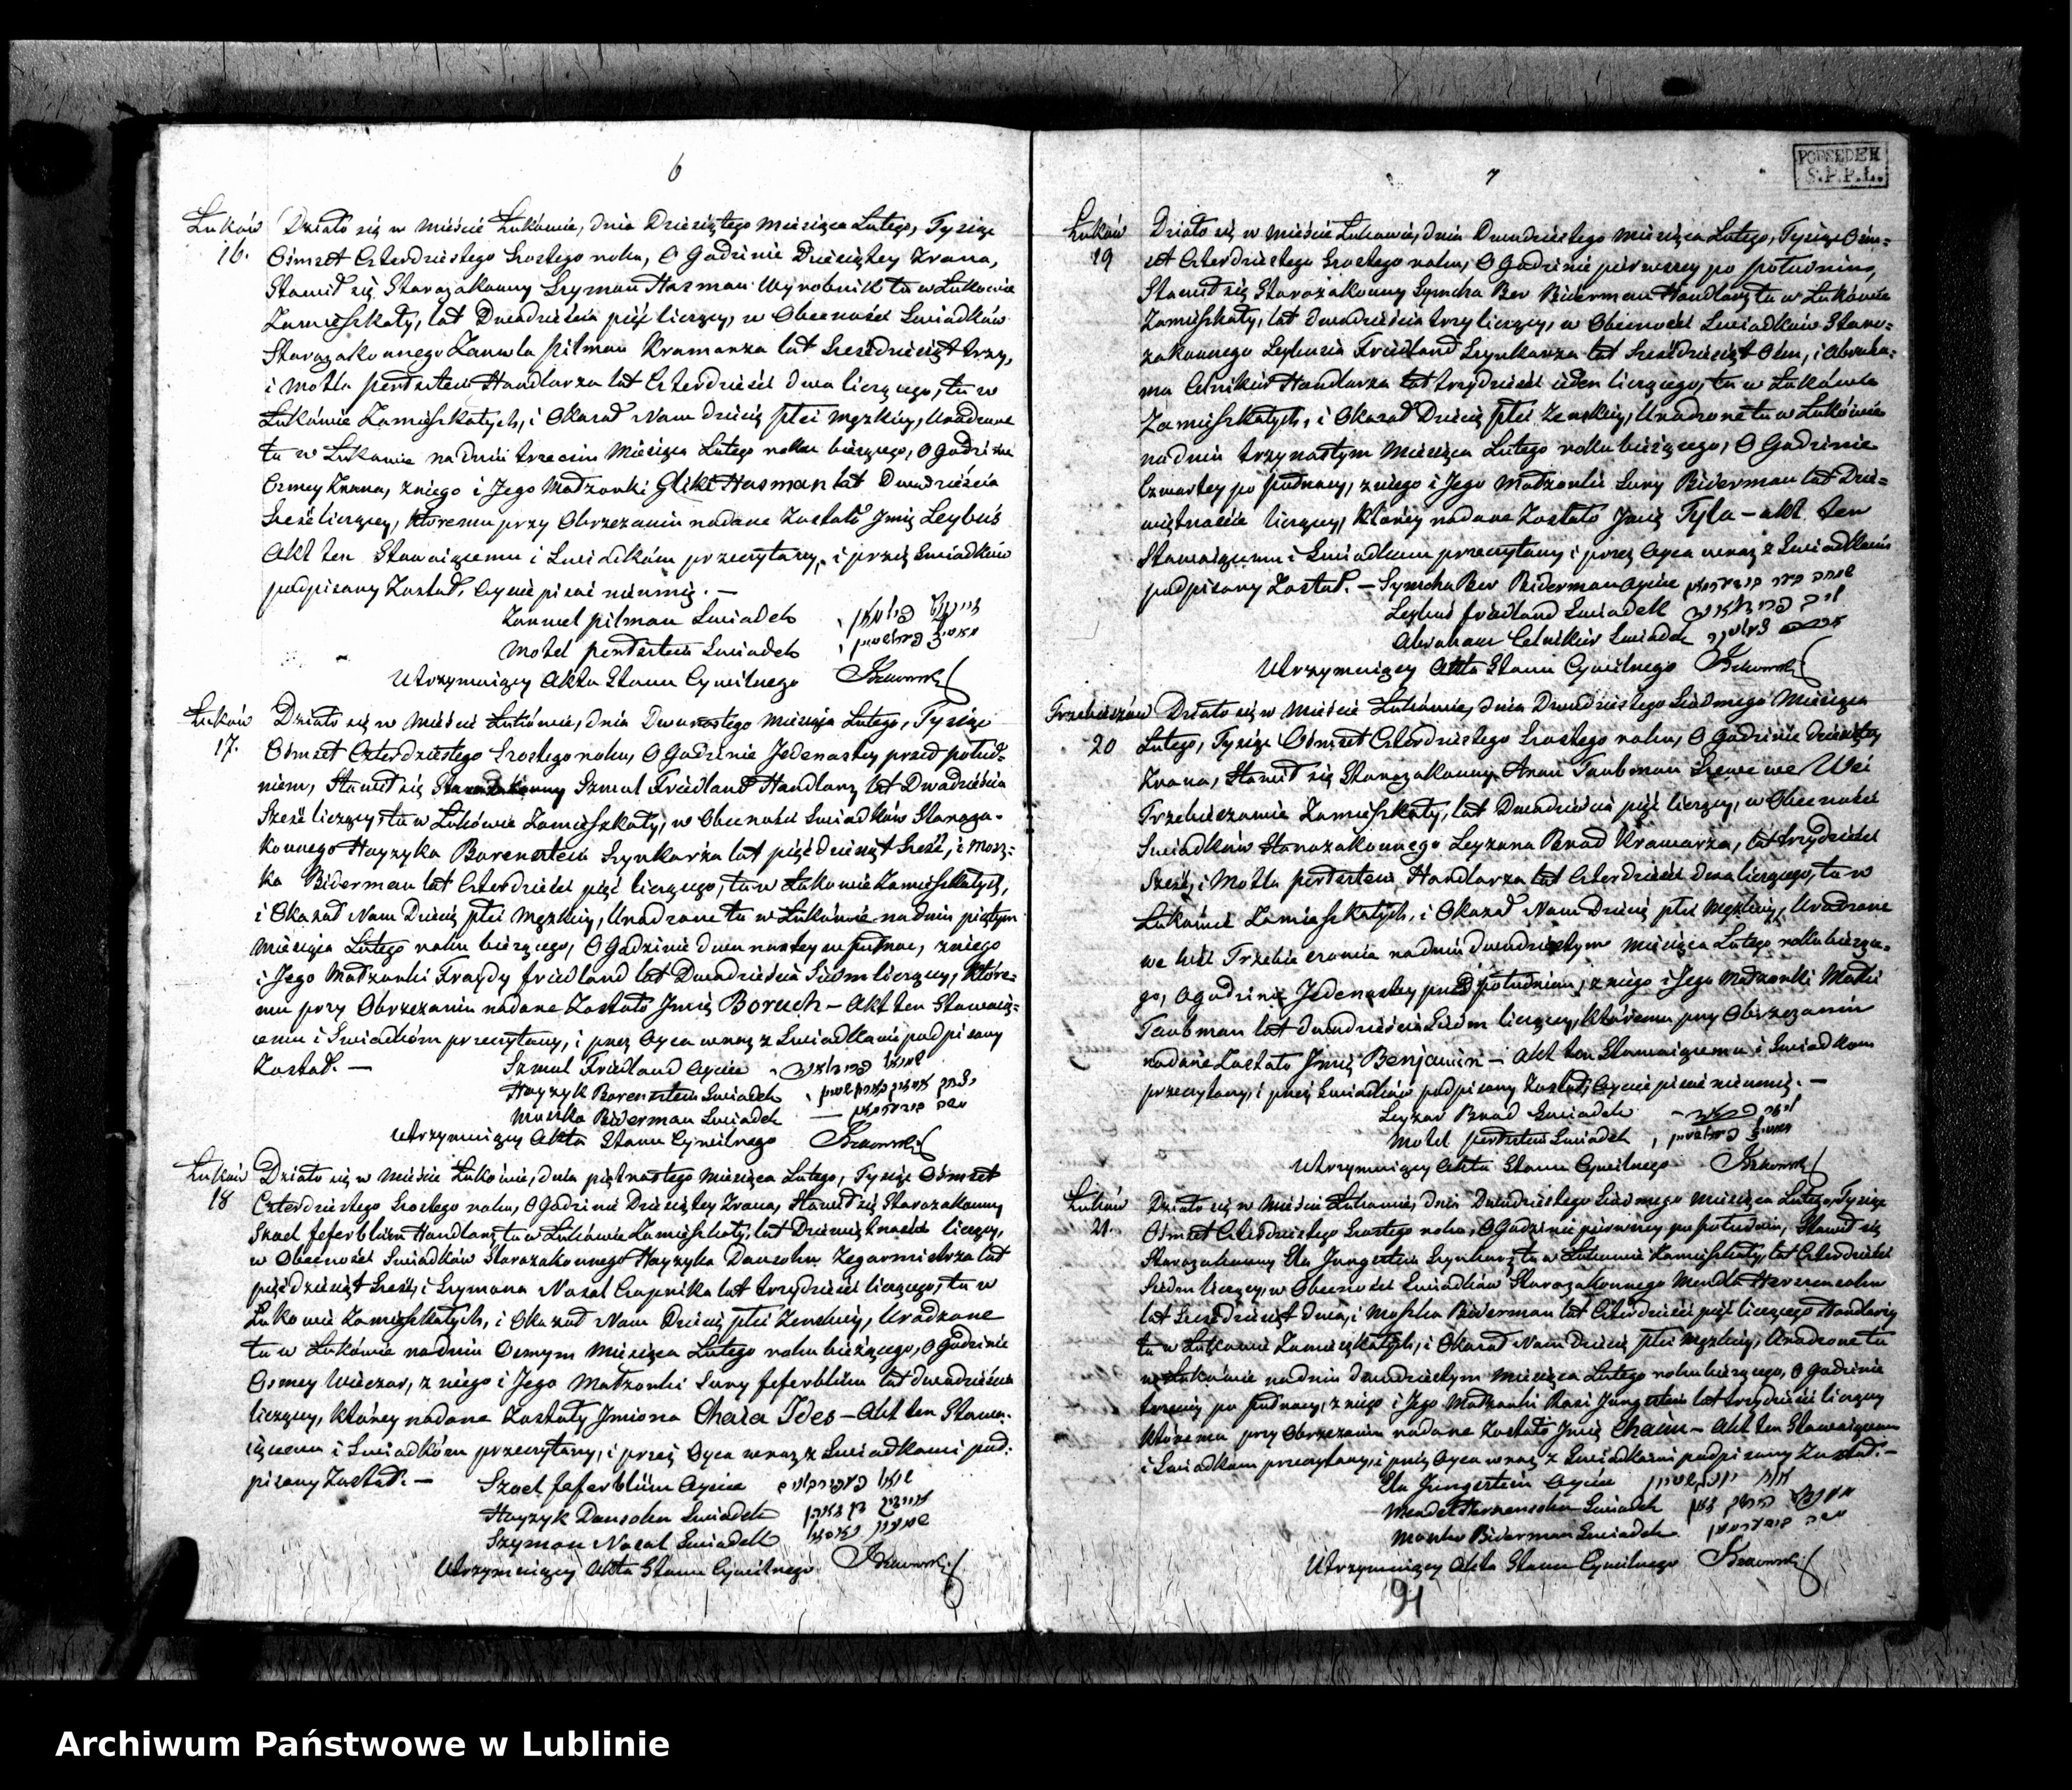 6
Łuków
16.
Działo się w Mieście Łukowie, dnia Dziesiątego Miesiąca Lutego, Tysiąc
Ośmset Czterdziestego Szostego roku, O Godzinie Dziesiątey Zrana,
Stawił się Starozakonny Szymon Hasman Wyrobnik tu w Łukowie
Zamieszkały, lat Dwadzieścia pięć liczący, w Obecności Swiadków
Starozakonnego Zanwla Pilman Kramarza lat Sześdziesiąt trzy,
i Motla Perelsztein Handlarza lat Czterdzieści dwa liczącego, tu w
Łukówie Zamieszkałych, i Okazał Nam Dziecię płci męzkiey, Urodzone
tu w Łukowie na dniu trzecim Miesiąca Lutego roku bieżącego, O Godzinie
Osmey Zrana, z niego i Jego Małżonki Glikl Hasman lat Dwadzieścia
Sześć liczącey, któremu przy Obrzezaniu nadane Zostało Jmię Leybuś
Akt ten Stawaiącemu i Swiadkóm przeczytany, i przez Swiadków
podpisany Został, Oyciec pisać nieumie. —
Zanwel Pilman Swiadek
Motel Perelsztein Swiadek
Utrzymuiący Akta Stanu Cywilnego
Łuków
17.
Działo się w Mieście Łukówie, dnia Dwunastego Miesiąca Lutego, Tysiąc
Ośmset Czterdziestego Szostego roku, O Godzinie Jedenastey przed połud=
niem, Stawił się Starozakonny Szmul Friedland Handlarz lat Dwadzieścia
Sześć liczący, tu w Łukówie Zamieszkały, w Obecności Swiadków Staroza-
konnego Hayzyka Borensztein Szynkarza lat pięćdziesiąt Sześć, i Mosz=
ka Biderman lat Czterdzieści pięć liczącego, tu w Łukowie Zamieszkałych,
i Okazał Nam Dziecię płci męzkiey, Urodzone tu w Łukówie na dniu piątym
Miesiąca Lutego roku bieżącego, O Godzinie dwunastey w pułnoc, z niego
i Jego Małżonki Fraydy Friedland lat Dwadzieścia Siedm liczącey, które=
mu przy Obrzezaniu nadane Zostało Jmię Boruch — Akt ten Stawaią=
cemu i Swiadkóm przeczytany, i przez Oyca wraz z Swiadkami podpisany
Został. —
Szmul Friedland Oyciec
Hayzyk Borensztein Swiadek
Moszko Biderman Swiadek
Utrzymuiący Akta Stanu Cywilnego
Łuków
18
Działo się w Mieście Łukówie, dnia piętnastego Miesiąca Lutego, Tysiąc Ośmset
Czterdziestego Szostego roku, O Godzinie Dziesiątey Zrana, Stawił się Starozakonny
Szoel Feferblüm Handlarz tu w Łukówie Zamieszkały, lat Dziewiętnaście liczący,
w Obecności Swiadków Starozakonnego Hayzyka Dansohn Zegarmistrza lat
pięćdziesiąt Sześć, i Szymona Nosal Czapnika lat trzydzieści liczącego, tu w
Łukowie Zamieszkałych, i Okazał Nam Dziecię płci Zenskiey, Urodzone
tu w Łukówie na dniu Osmym Miesiąca Lutego roku bieżącego, O Godzinie
Osmey Wieczor, z niego i Jego Małżonki Sury Feferblüm lat dwadzieścia
liczącey, którey nadane Zostały Jmiona Chaia Ides — Akt ten Stawa=
iącemu i Swiadkóm przeczytany, i przez Oyca wraz z Swiadkami pod=
pisany Został. —
Szoel Feferblüm Oyciec
Hayzyk Dansohn Swiadek
Szymon Nosal Swiadek
Utrzymuiący Akta Stanu Cywilnego
7
PODSĘDEK
S.P.P.L.
Łuków
19
Działo się w Mieście Łukowie, dnia Dwudziestego Miesiąca Lutego, Tysiąc Ośm=
set Czterdziestego Szostego roku, O Godzinie pierwszey po południu,
Stawił się Starozakonny Symcha Ber Biderman Handlarz tu w Łukówie
Zamieszkały, lat dwadzieścia trzy liczący, w Obecności Swiadków Staro=
zakonnego Leybusia Friedland Szynkarza lat Sześdziesiąt Ośm, i Abraha=
ma Celnikier Handlarza lat trzydzieści ieden liczącego, tu w Łukówie
Zamieszkałych, i Okazał Dziecię płci Zenskiey, Urodzone tu w Łukówie
na dniu trzynastym Miesiąca Lutego roku bieżącego, O Godzinie
Czwartey po pułnocy, z niego i Jego Małżonki Sury Biderman lat Dzie=
więtnaście liczącey, którey nadane Zostało Jmię Tyla — akt ten
Stawaiącemu i Swiadkom przeczytany i przez Oyca wraz z Swiadkami
podpisany Został. — Symcha Ber Biderman Oyciec
Leybuś Friedland Swiadek
Abraham Celnikier Swiadek
Utrzymuiący Akta Stanu Cywilnego
Trzebieszów
20
Działo się w Mieście Łukówie, dnia Dwudziestego Siódmego Miesiąca
Lutego, Tysiąc Ośmset Czterdziestego Szostego roku, O Godzinie Dziesiątey
Zrana, Stawił się Starozakonny Aron Taubman Szewc we Wsi
Trzebieszowie Zamieszkały, lat Dwadzieścia pięć liczący, w Obecności
Swiadków Starozakonnego Leyzora Brod Kramarza, lat trzydzieści
Sześć, i Motla Perelsztein Handlarza lat Czterdzieści dwa liczącego, tu w
Łukówie Zamieszkałych, i Okazał Nam Dziecię płci Męzkiey, Urodzone
we Wsi Trzebieszowie na dniu dwudziestym Miesiąca Lutego roku bieżące=
go, O godzinie Jedenastey przed południem, z niego i Jego Małżonki Matli
Taubman lat dwadzieścia Siedm liczącey, któremu przy Obrzezaniu
nadane Zostało Jmię Benjamin — Akt ten Stawaiącemu i Swiadkom
przeczytany, i przez Swiadków podpisany Został, Oyciec pisać nieumie. —
Leyzor Brod Swiadek
Motel Perelsztein Swiadek
Utrzymuiący Akta Stanu Cywilnego
Łuków
21.
Działo się w Mieście Łukowie, dnia Dwudziestego Siódmego Miesiąca Lutego, Tysiąc
Ośmset Czterdziestego Szostego roku, O Godzinie pierwszey po południu, Stawił się
Starozakonny Ela Jungsztein Szynkarz tu w Łukowie Zamieszkały, lat Czterdzieści
Siedm liczący, w Obecności Swiadków Starozakonnego Mendla
lat Sześdziesiąt dwa, i Moszka Biderman lat Czterdzieści pięć liczącego Handlarzy
tu w Łukowie Zamieszkałych, i Okazał Nam Dziecię płci Męzkiey, Urodzone tu
w Łukówie na dniu dwudziestym Miesiąca Lutego roku bieżącego, O godzinie
trzeciey po pułnocy, z niego i Jego Małżonki Rasi Jungsztein lat trzydzieści liczącey
któremu przy Obrzezaniu nadane Zostało Jmię Chaim — Akt ten Stawaiącemu
i Swiadkom przeczytany, i przez Oyca wraz z Swiadkami podpisany Został. —
Ela Jungsztein Oyciec
Mendel Swiadek
Moszko Biderman Swiadek
Utrzymuiący Akta Stanu Cywilnego
91
Archiwum Państwowe w Lublinie